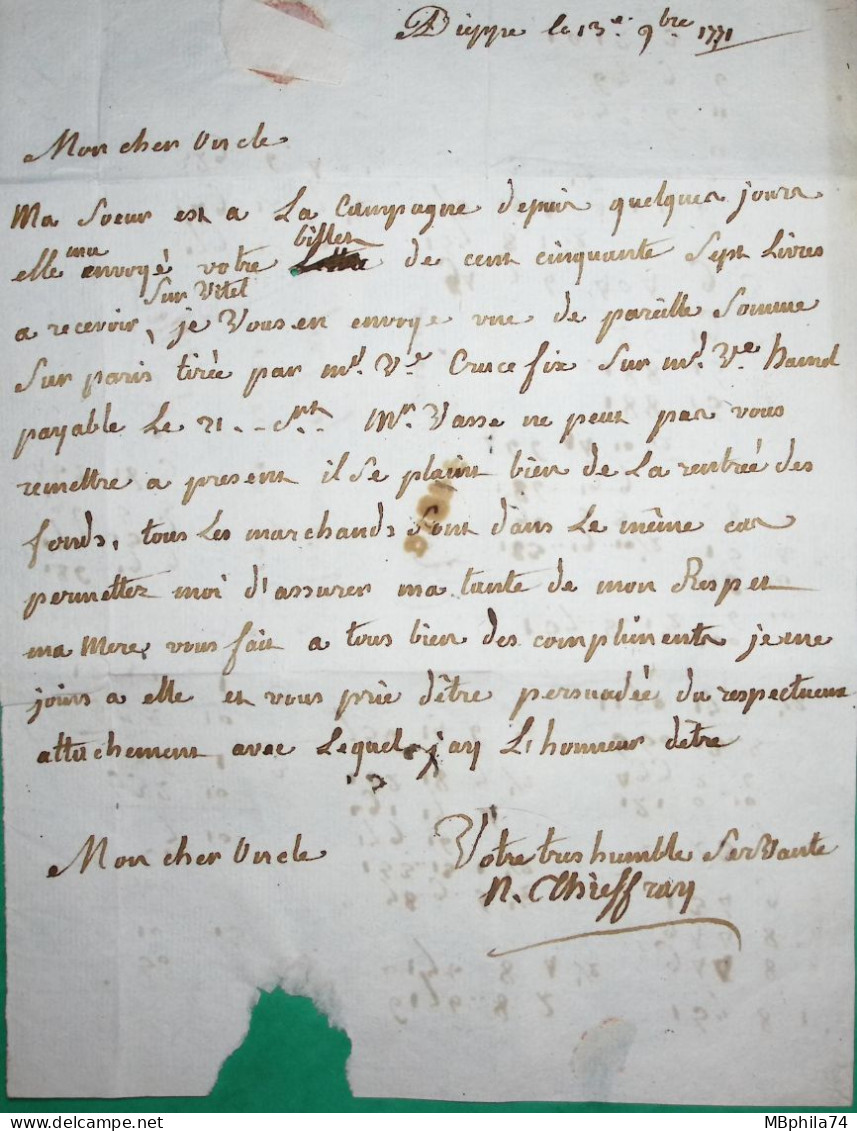 Dieppe le 13e. 9bre 1771
Mon cher Oncle
Ma Soeur est a La Campagne depuis quelques jours
elle ma envoyé votre billet de cent cinquante Sept Livres
Sur Vitel
a recevoir, je Vous en envoye une de pareille Somme
Sur paris tirée par md. Ve Crucefix Sur md. Ve hamel
payable Le 21 Mr. Vasse ne peut pas vous
remettre a present il Se plaint bien de La rentrée des
fonds, tous Les marchands Sont dans Le même cas
permettez moi d'assurer ma tante de mon Respet
ma Mere, vous fait a tous bien des compliments je me
joins a elle et vous prie d'être persuadée du respectueux
attachement avec Lequel jay Lhonneur detre
Mon cher Oncle
Votre tres humble Servante
N. Chieffray
MBphila74